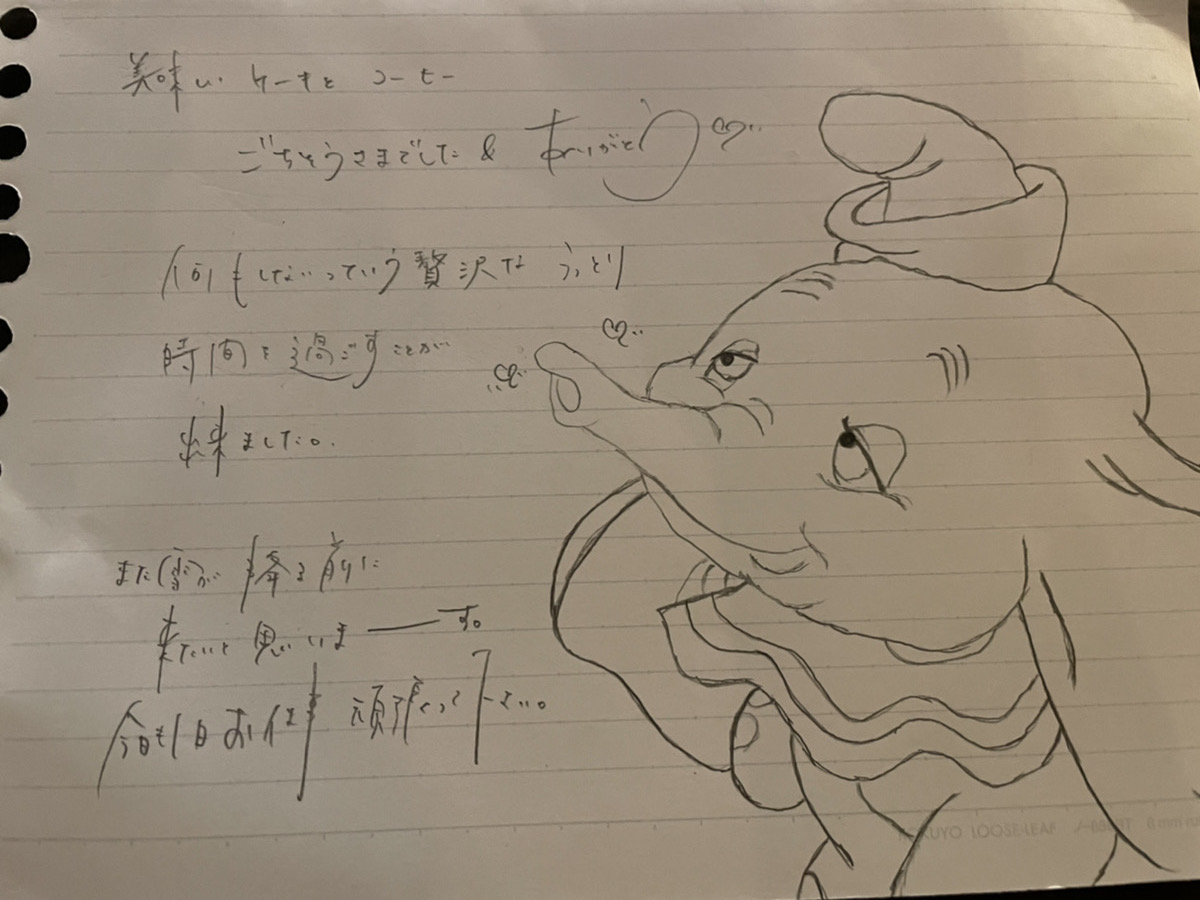 美味しい ケーキと コーヒー
ごちそうさまでした & ありがとう
何もしないっていう贅沢な
時間を過ごすことが
出来ました。
また雪が降る前に
来たいと思いいま――す。
今日も1日お仕事 頑張って下さい。
KOKUYO LOOSE-LEAF